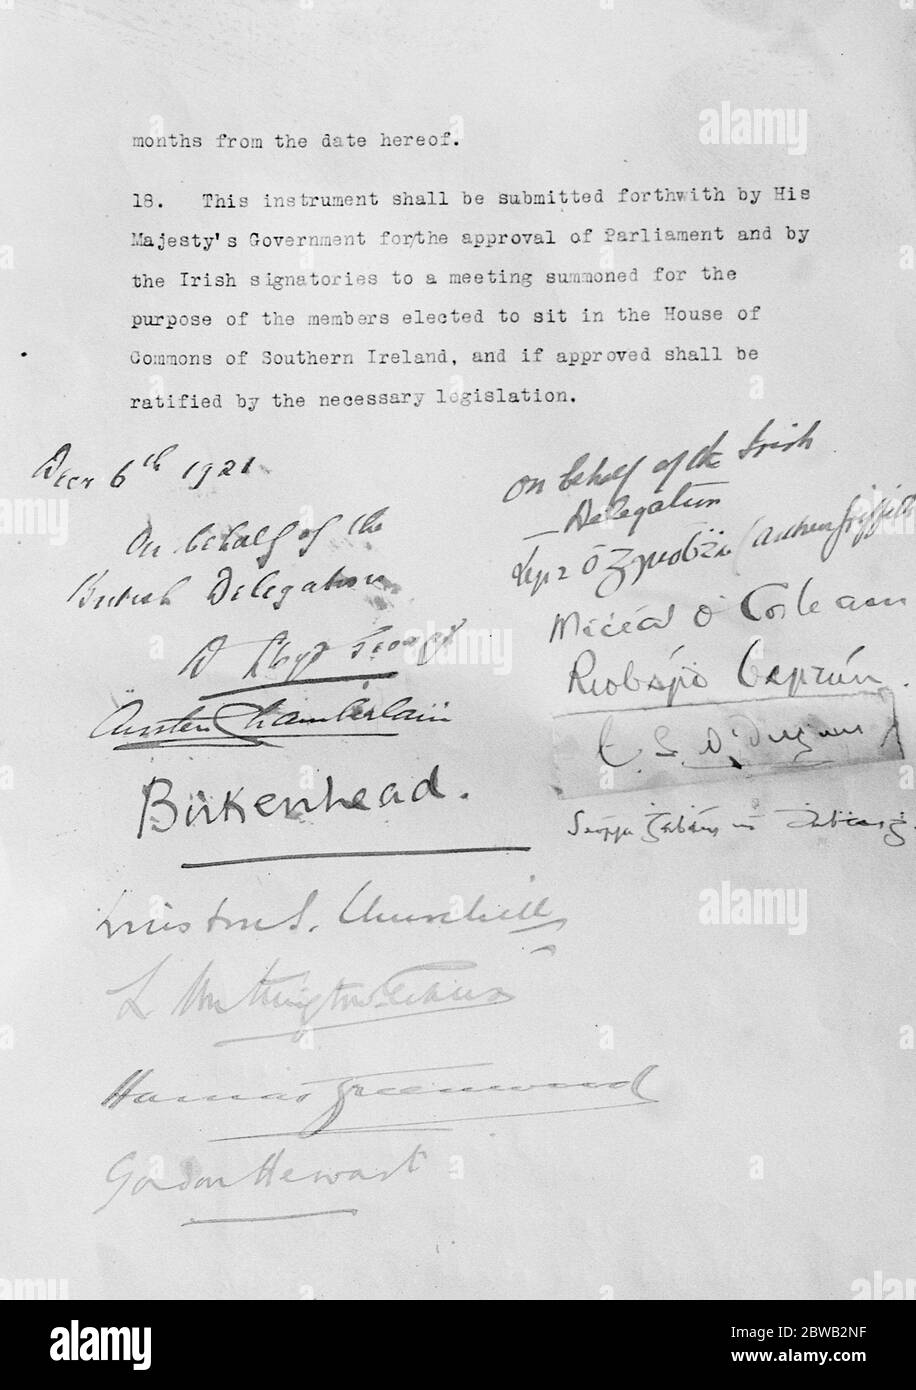 months from the date hereof.
18. This instrument shall be submitted forthwith by His
Majesty's Government for/the approval of Parliament and by
the Irish signatories to a meeting summoned for the
purpose of the members elected to sit in the House of
Commons of Southern Ireland, and if approved shall be
ratified by the necessary legislation.
Decr 6th 1921
On behalf of the
British Delegation
D Lloyd George
Austen Chamberlain
Birkenhead.
Winston S. Churchill
L Worthington-Evans
Hamar Greenwood
Gordon Hewart
On behalf of the Irish
Delegation
Art Ó (Arthur Griffith
Mícéal Ó Coileain
Riobárd Bartún.
E. S. Ó Dugain
Seórsa Ghabháin uí Dhubhthaigh
alamy
alamy
alamy
alamy
alamy
Image ID: 2BWB2NF
www.alamy.com